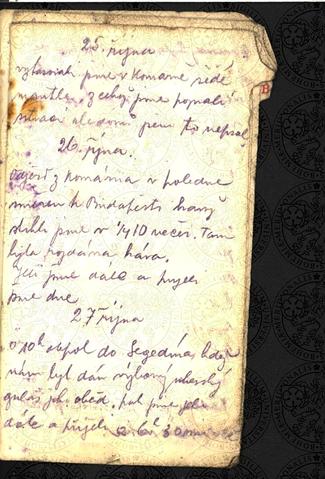 25. října
vyfasovali jsme v Komarně šedé
mantle, z čehož jsme poznali
ale domů jsem to nepsal
26. října.
Odjezd z Komárna v poledne
směrem k Budapešti kamž
stihli jsme v ¼10 večer. Tam
byla rozdána káva.
Jeli jsme dále a přijeli
jsme dne
27 října
o 10h odpol do Segedína, kdež
nám byl dán výborný uherský
guláš jako oběd, pak jsme jeli
dále a přijeli o 6h 30 min
B